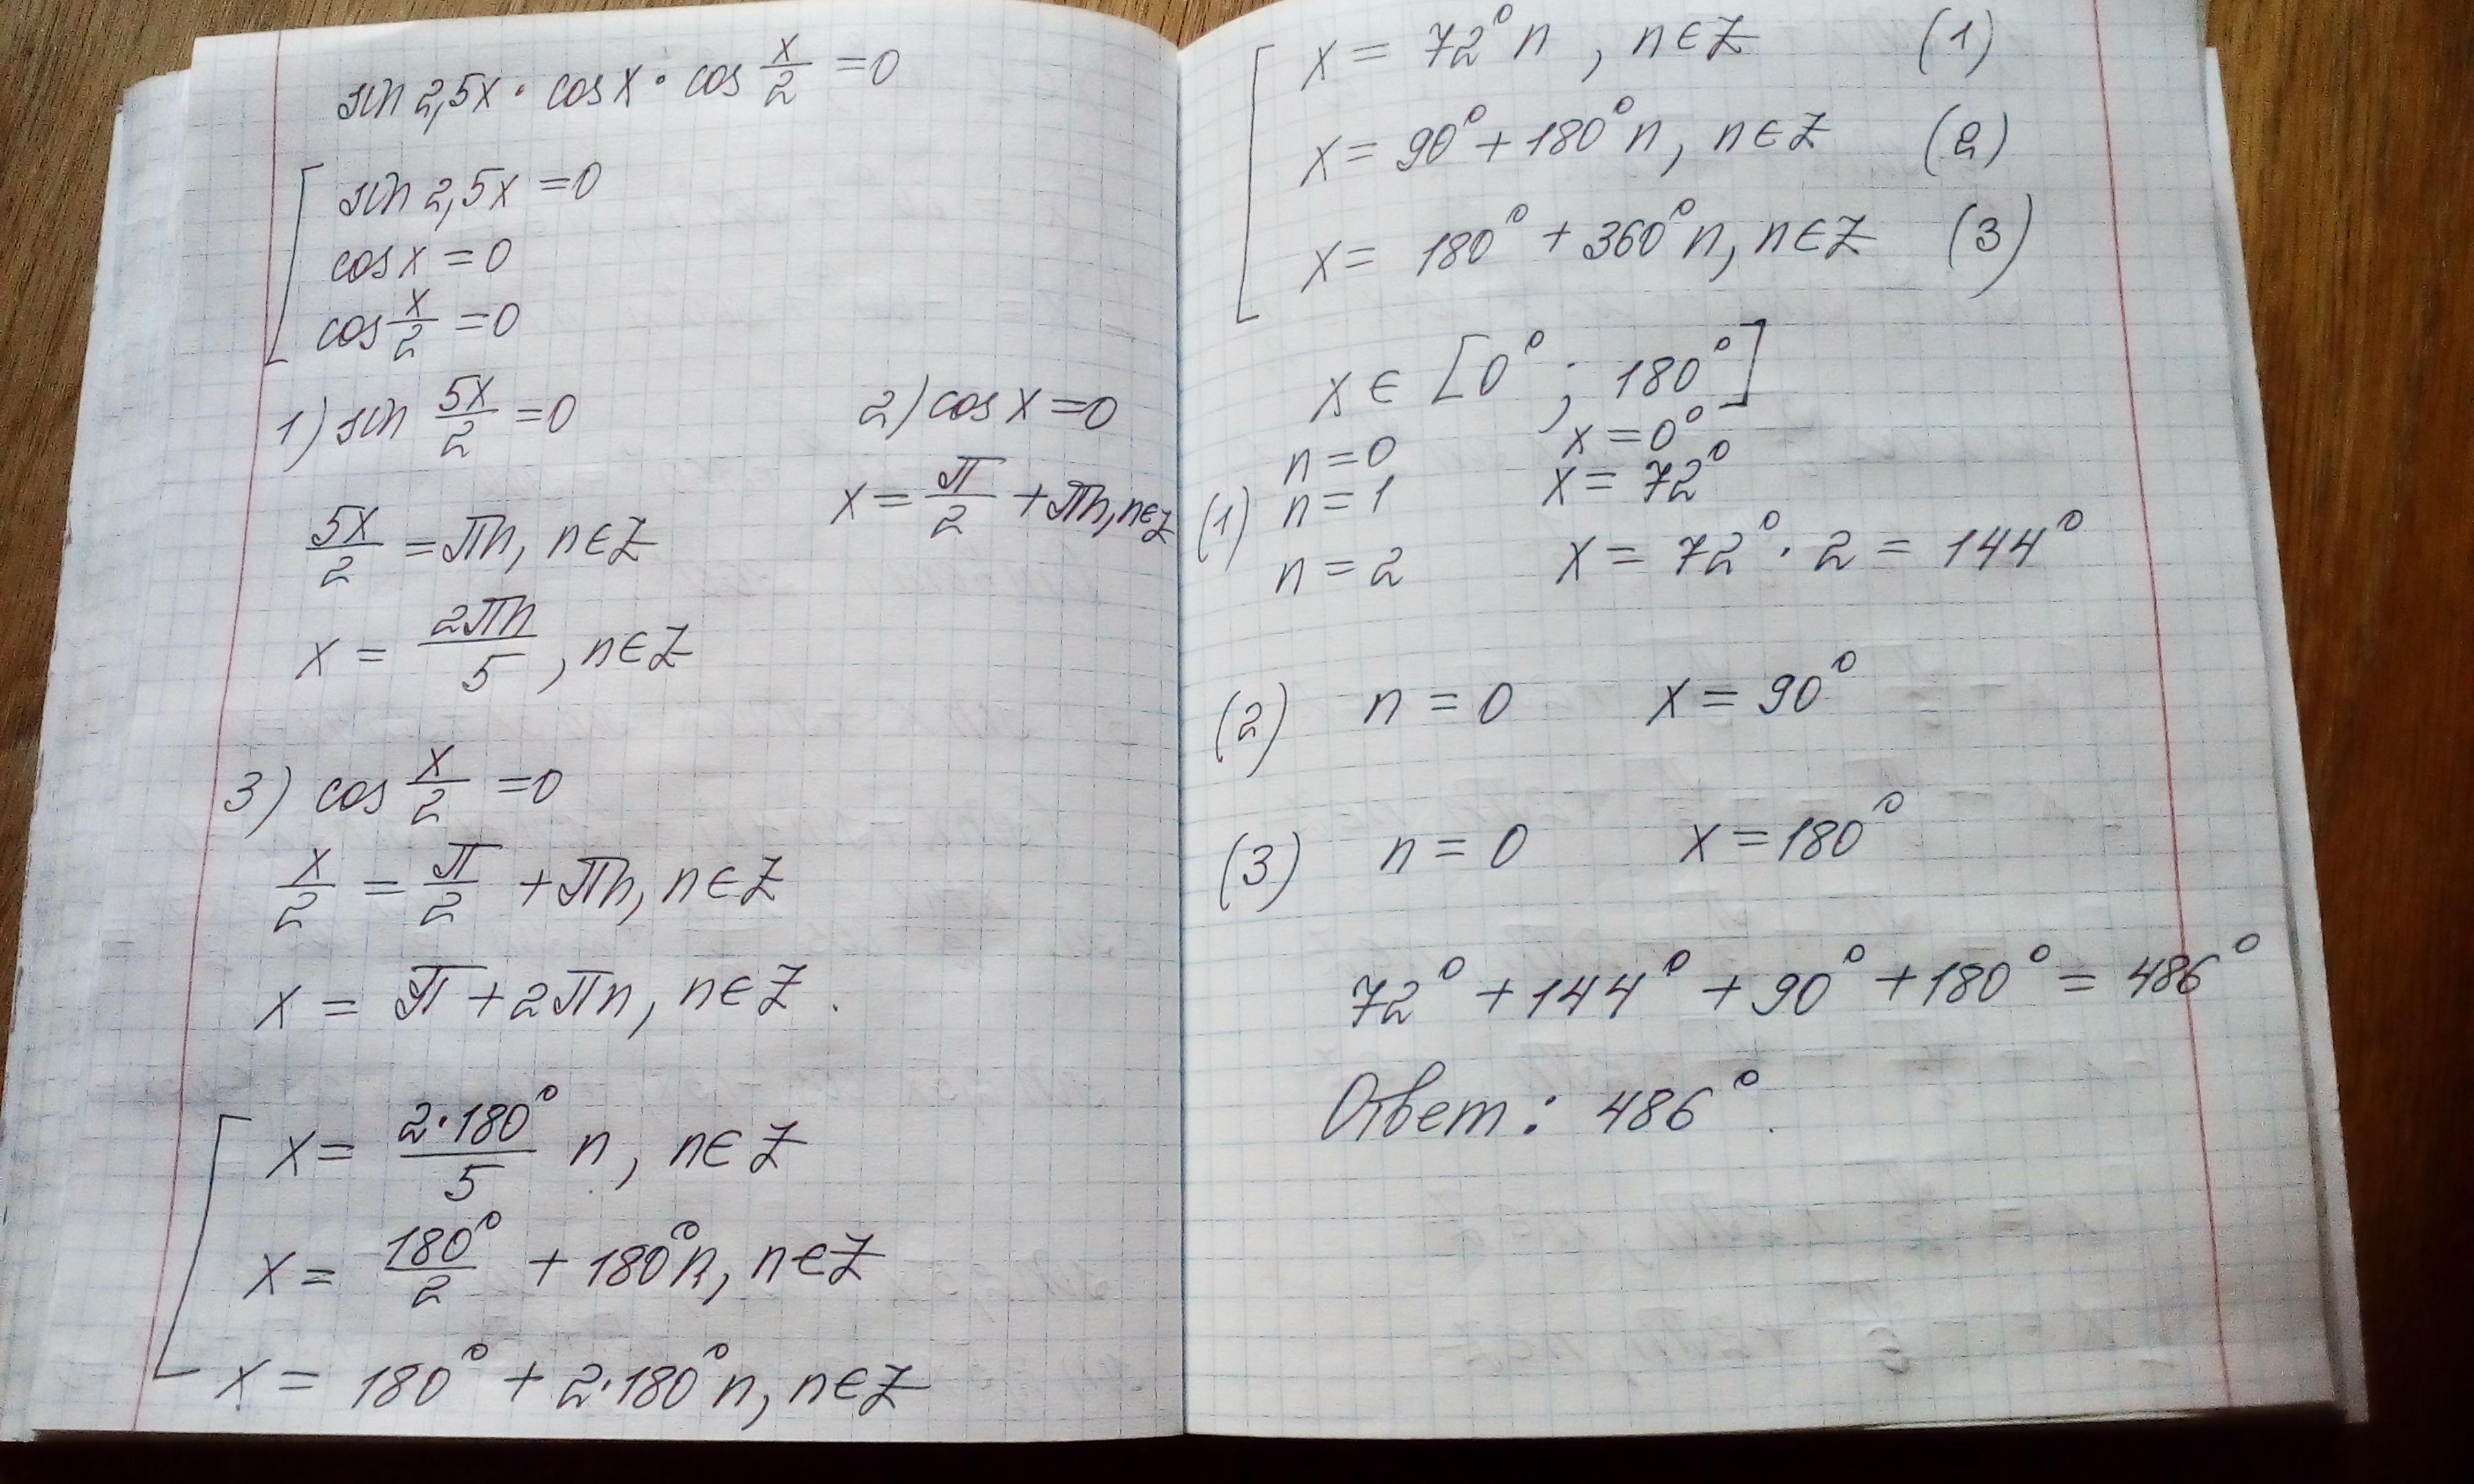 sin 2,5x · cos x · cos x/2 = 0
sin 2,5x = 0
cos x = 0
cos x/2 = 0
1) sin 5x/2 = 0
5x/2 = πn, n∈Z
x = 2πn/5, n∈Z
2) cos x = 0
x = π/2 + πn, n∈Z
3) cos x/2 = 0
x/2 = π/2 + πn, n∈Z
x = π + 2πn, n∈Z.
x = 2·180°/5 n, n∈Z
x = 180°/2 + 180°n, n∈Z
x = 180° + 2·180°n, n∈Z
x = 72°n, n∈Z (1)
x = 90° + 180°n, n∈Z (2)
x = 180° + 360°n, n∈Z (3)
x ∈ [0°; 180°]
n = 0 x = 0°
(1) n = 1 x = 72°
n = 2 x = 72°·2 = 144°
(2) n = 0 x = 90°
(3) n = 0 x = 180°
72° + 144° + 90° + 180° = 486°
Ответ: 486°.